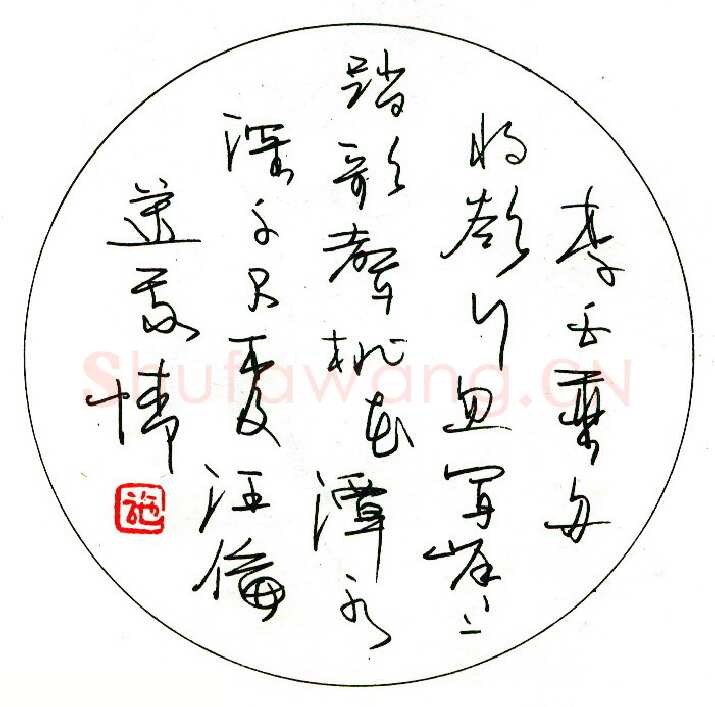 李白乘舟
将欲行忽闻岸上
踏歌聲桃花潭水
深千尺不及汪倫
送我情
施
Shufawang.CN